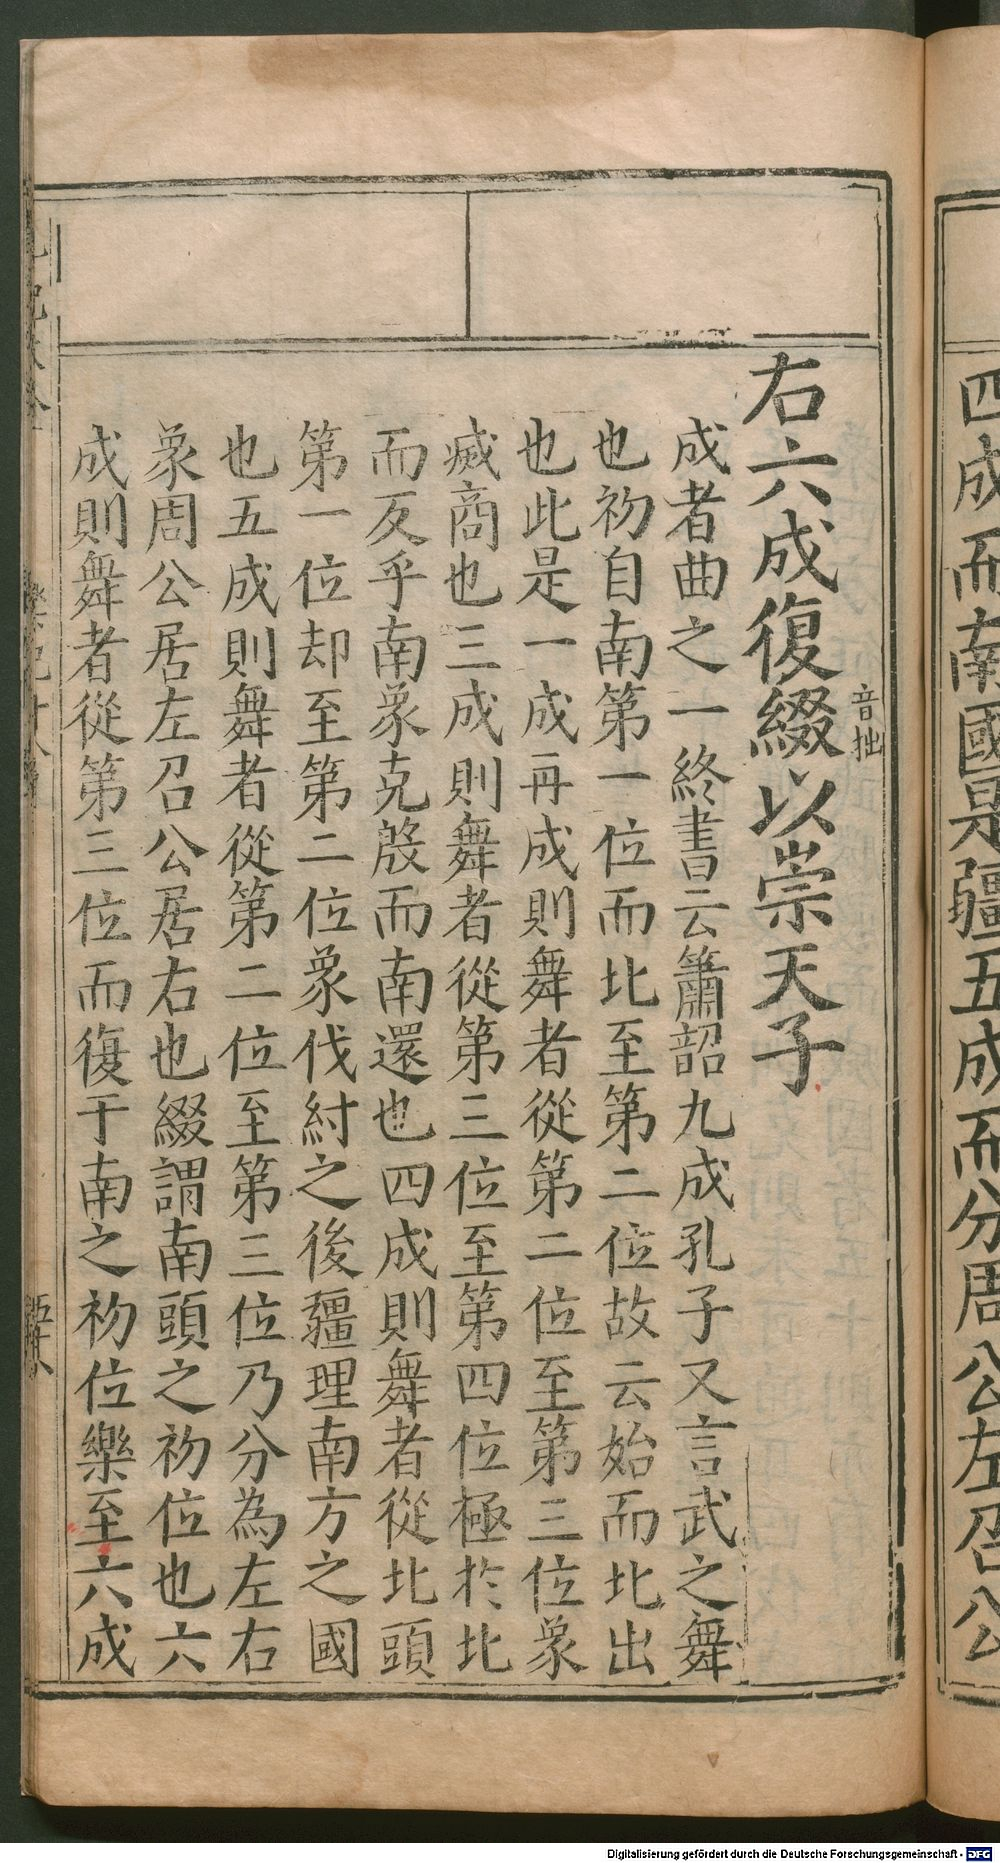 四成而南國是疆五成而分周公左召公
右六成復綴以崇天子
音拙
成者曲之一終書云簫韶九成孔子又言武之舞
也初自南第一位而北至第二位故云始而北出
也此是一成再成則舞者從第二位至第三位象
滅商也三成則舞者從第三位至第四位極於北
而反乎南象克殷而南還也四成則舞者從北頭
第一位却至第二位象伐紂之後疆理南方之國
也五成則舞者從第二位至第三位乃分為左右
象周公居左召公居右也綴謂南頭之初位也六
成則舞者從第三位而復于南之初位樂至六成
Digitalisierung gefördert durch die Deutsche Forschungsgemeinschaft - DFG